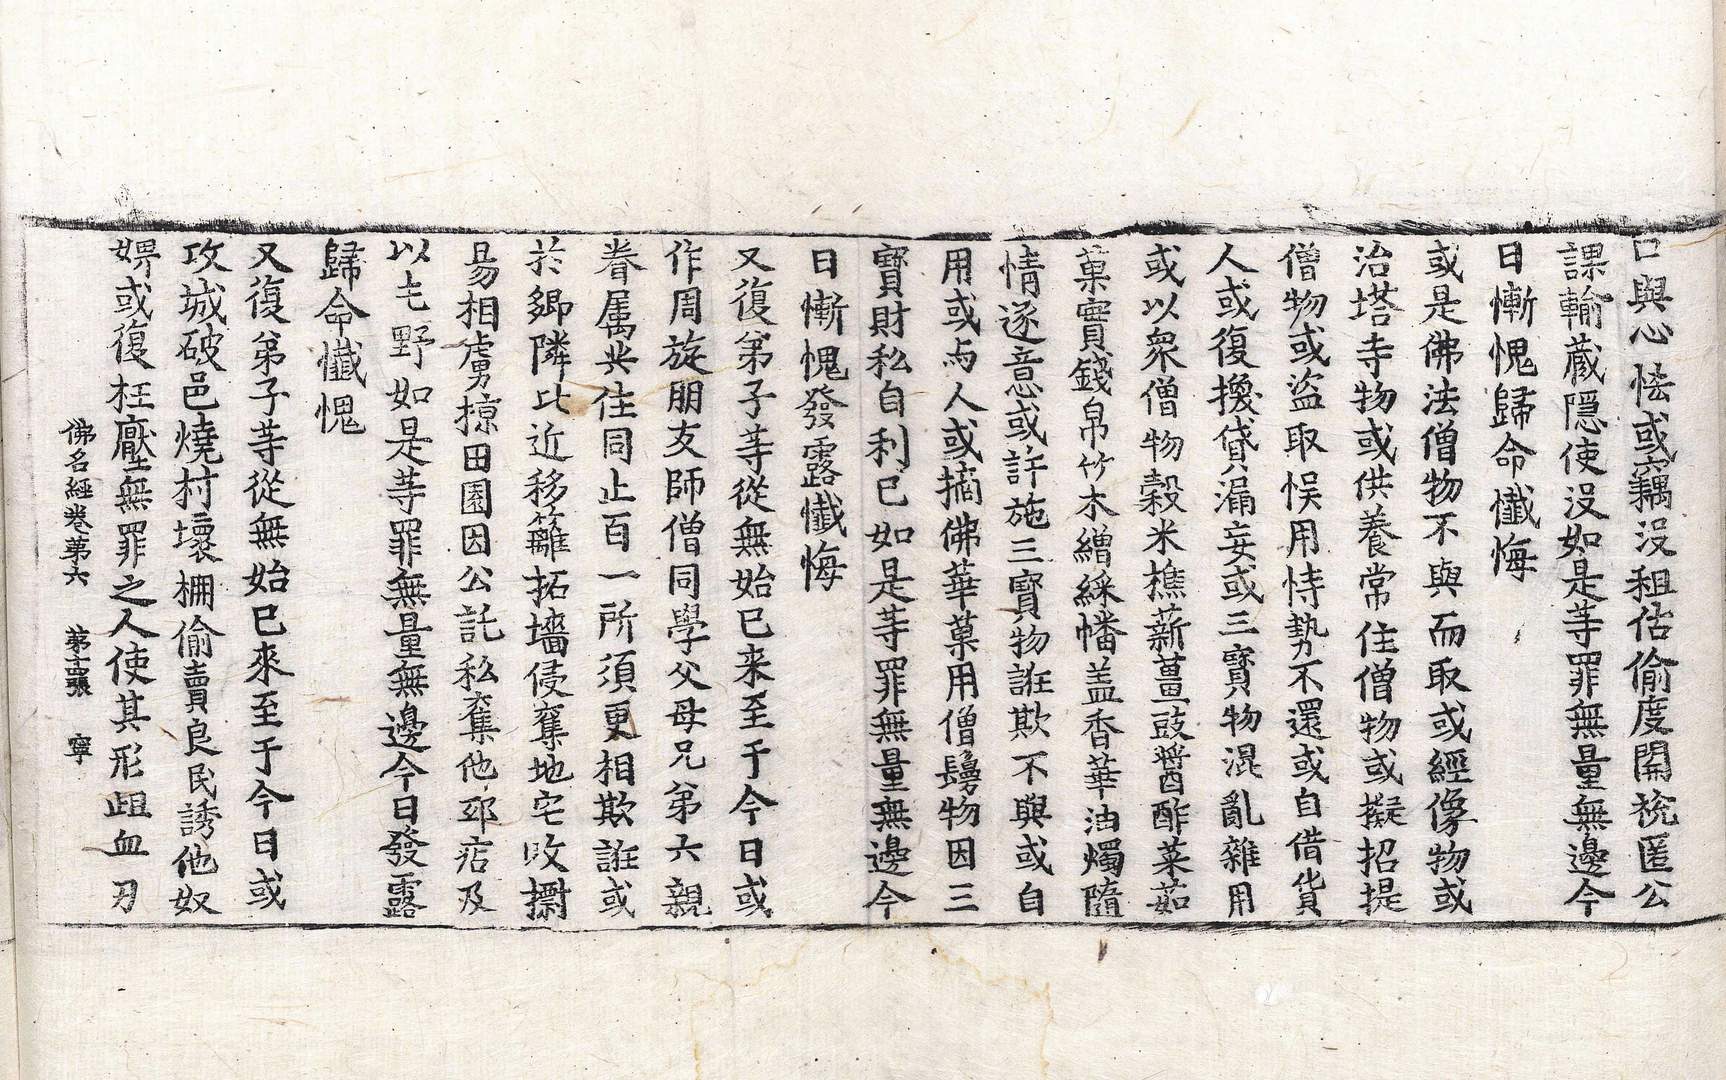 口與心恠或竊沒租估偷度關梳匿公
課輸蔵隠使沒如是等罪無量無邊今
日慚愧歸命懺悔
或是佛法僧物不與而取或經像物或
治塔寺物或供養常住僧物或擬招提
僧物或盜取悞用恃勢不還或自借貨
人或復換貸漏妄或三寶物混亂雜用
或以衆僧物穀米樵薪薑豉醬酢菜茹
菓實錢帛竹木繒綵幡盖香華油燭隨
情逐意或許施三寶物誑欺不與或自
用或与人或摘佛華菓用僧鬘物因三
寶財私自利已如是等罪無量無邊今
日慚愧發露懺悔
又復弟子等從無始已来至于今日或
作周旋朋友師僧同學父母兄弟六親
眷属共住同止百一所須更相欺誑或
於鄉隣比近移籬拓墻侵奪地宅改㩌
昜相虜掠田園因公託私奪他邸店及
以乇野如是等罪無量無邊今日發露
歸命懺愧
又復弟子等從無始已來至于今日或
攻城破邑燒村壞柵偷賣良民誘他奴
婢或復枉壓無罪之人使其形殂血刃
佛名經卷第六 第十四張 寧